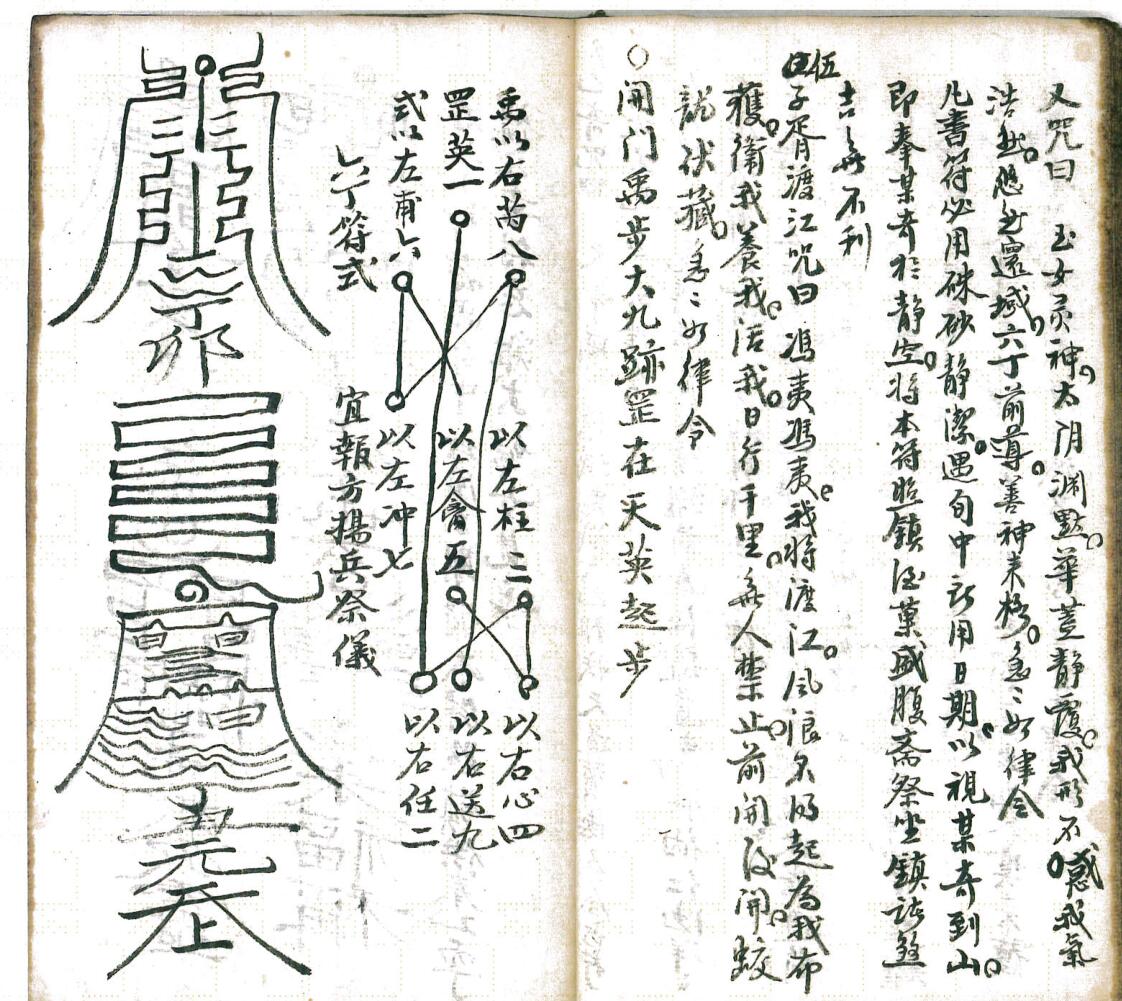 又咒曰 玉女灵神。太阴渊默。華盖静覆。我形不惑。我氣
浩然。忽然還域。六丁前導。善神来格。急〻如律令
凡書符必用硃砂静潔。遇旬中所用日期。以視某奇到山。
即奉某奇於静室。将本符照鎮 酒菓盛腹斋祭坐鎮諸煞
吉無不利
伍子胥渡江咒曰 馮夷馮夷。我将渡江。風浪不得起為我布
獲。衛我養我。活我。日行千里。無人禁止。前開後開。蛟
龍伏藏。急〻如律令
○開门禹步大九跡罡在天英起步
禹以右芮八
罡英一
式以左甫六
六丁符式
以左柱二
以左禽五
以左冲七
宜報方揚兵祭儀
以右心四
以右送九
以右任二
丁卯
元
上